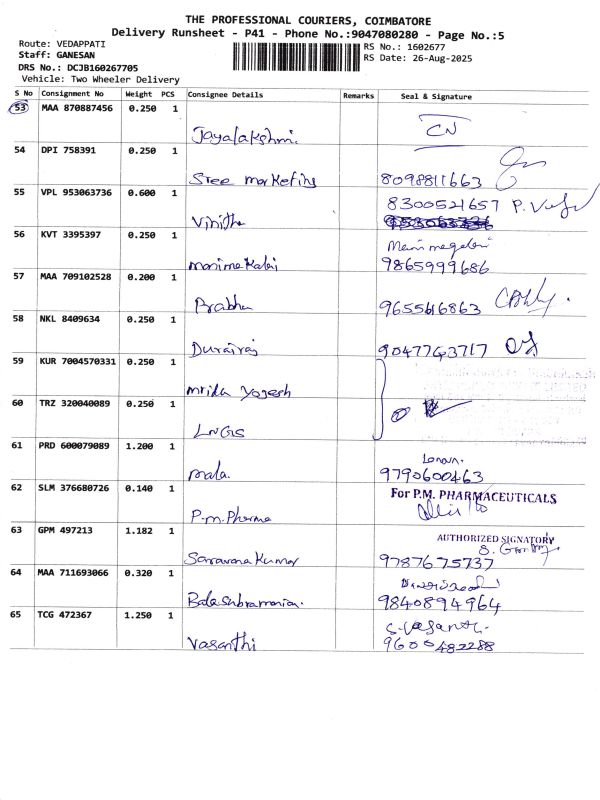 THE PROFESSIONAL COURIERS, COIMBATORE
Delivery Runsheet - P41 - Phone No.:9047080280 - Page No.:5
Route: VEDAPPATI
Staff: GANESAN
DRS No.: DCJB160267705
Vehicle: Two Wheeler Delivery
RS No.: 1602677
RS Date: 26-Aug-2025
S No Consignment No Weight PCS Consignee Details Remarks Seal & Signature
53 MAA 870887456 0.250 1
Jayalakshmi. CN
54 DPI 758391 0.250 1
Sree marketing 8098811663
55 VPL 953063736 0.600 1
8300521657
Vinitha
56 KVT 3395397 0.250 1
Manimegalai
manimekalai 9865999686
57 MAA 709102528 0.200 1
Prabhu 9655616863
58 NKL 8409634 0.250 1
Durairaj 9047743717
59 KUR 7004570331 0.250 1
mrida yogesh
60 TRZ 320040089 0.250 1
LNGS
61 PRD 600079089 1.200 1
mala. 9790600463
62 SLM 376680726 0.140 1
For P.M. PHARMACEUTICALS
P.m.Pharma
63 GPM 497213 1.182 1
AUTHORIZED SIGNATORY
Saravana Kumar 9787675737
64 MAA 711693066 0.320 1
Balasubramanian. 9840894964
65 TCG 472367 1.250 1
S.Vasanthi.
Vasanthi 9600482288